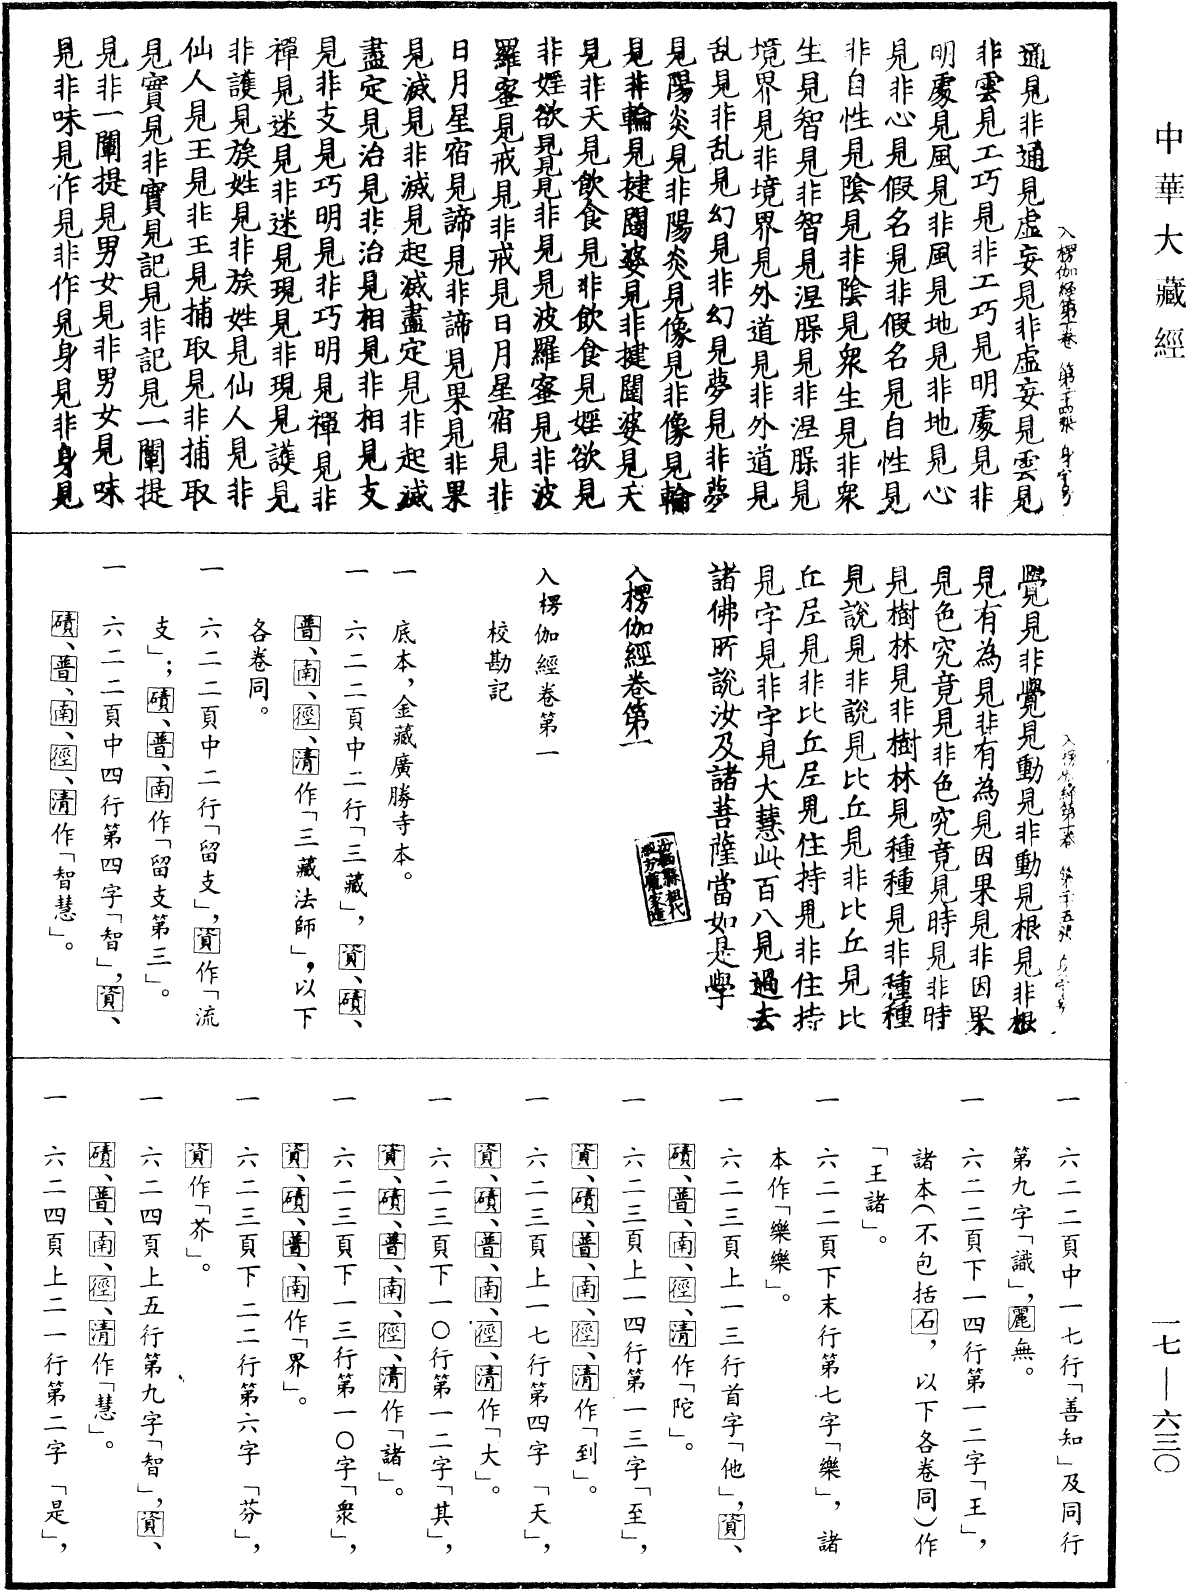 中華大藏經
一七—六三〇
入楞伽經第一卷 第二十四張 身字号
通見非通見虛妄見非虛妄見雲見
非雲見工巧見非工巧見明處見非
明處見風見非風見地見非地見心
見非心見假名見非假名見自性見
非自性見陰見非陰見衆生見非衆
生見智見非智見涅槃見非涅槃見
境界見非境界見外道見非外道見
乱見非乱見幻見非幻見夢見非夢
見陽炎見非陽炎見像見非像見輪
見非輪見揵闥婆見非揵闥婆見天
見非天見飲食見非飲食見婬欲見
非婬欲見見見非見見波羅蜜見非波
羅蜜見戒見非戒見日月星宿見非
日月星宿見諦見非諦見果見非果
見滅見非滅見起滅盡定見非起滅
盡定見治見非治見相見非相見支
見非支見巧明見非巧明見禪見非
禪見迷見非迷見現見非現見護見
非護見族姓見非族姓見仙人見非
仙人見王見非王見捕取見非捕取
見實見非實見記見非記見一闡提
見非一闡提見男女見非男女見味
見非味見作見非作見身見非身見
入楞伽經第一卷 第二十五張 身字号
覺見非覺見動見非動見根見非根
見有為見非有為見因果見非因果
見色究竟見非色究竟見時見非時
見樹林見非樹林見種種見非種種
見說見非說見比丘見非比丘見比
丘尼見非比丘尼見住持見非住持
見字見非字見大慧此百八見過去
諸佛所說汝及諸菩薩當如是學
入楞伽經卷第一
入楞伽經卷第一
校勘記
一 底本，金藏廣勝寺本。
一 六二二頁中二行「三藏」，資、磧、
普、南、徑、清作「三藏法師」，以下
各卷同。
一 六二二頁中二行「留支」，資作「流
支」；磧、普、南作「留支第三」。
一 六二二頁中四行第四字「智」，資、
磧、普、南、徑、清作「智慧」。
一 六二二頁中一七行「善知」及同行
第九字「識」，麗無。
一 六二二頁下一四行第一二字「王」，
諸本（不包括石，以下各卷同）作
「王諸」。
一 六二二頁下末行第七字「樂」，諸
本作「樂樂」。
一 六二三頁上一三行首字「他」，資、
磧、普、南、徑、清作「陀」。
一 六二三頁上一四行第一三字「至」，
資、磧、普、南、徑、清作「到」。
一 六二三頁上一七行第四字「天」，
資、磧、普、南、徑、清作「大」。
一 六二三頁下一〇行第一二字「其」，
資、磧、普、南、徑、清作「諸」。
一 六二三頁下一三行第一〇字「衆」，
資、磧、普、南作「界」。
一 六二三頁下二二行第六字「芬」，
資作「芥」。
一 六二四頁上五行第九字「智」，資、
磧、普、南、徑、清作「慧」。
一 六二四頁上二一行第二字「是」，